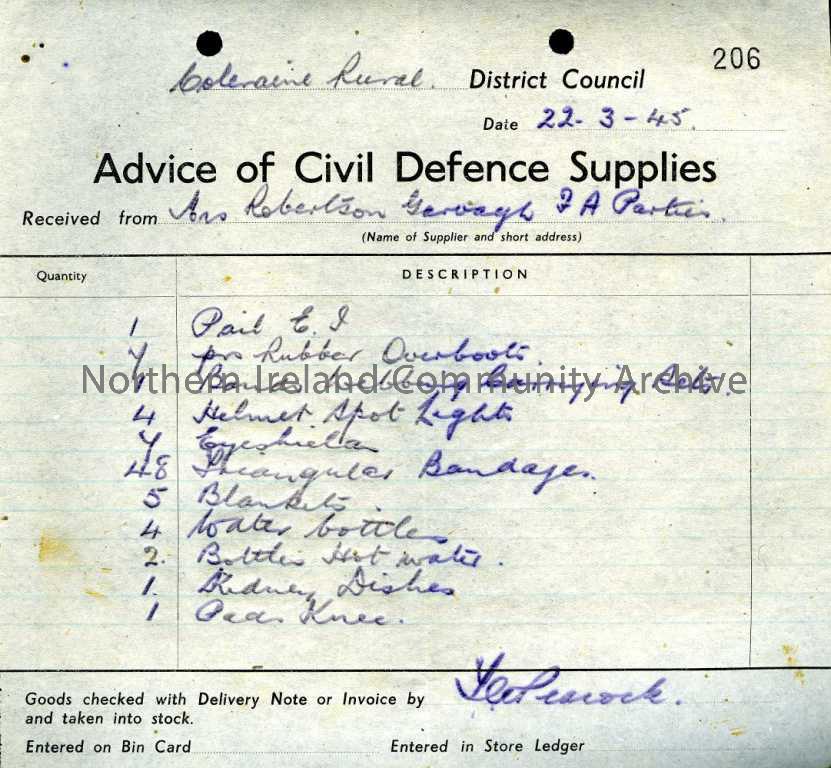 206
Coleraine Rural. District Council
Date 22-3-45.
Advice of Civil Defence Supplies
Received from Mrs Robertson Garvagh F A Parties.
(Name of Supplier and short address)
Quantity DESCRIPTION
1 Pail E. I
7 prs Rubber Overboots.
1 Bands Webbing Carrying Sets.
Northern Ireland Community Archive
4 Helmet Spot Lights
7 Eyeshields
48 Triangular Bandages.
5 Blankets.
4 Water bottles
2. Bottles Hot water.
1. Kidney Dishes
1 Pads Knee.
Goods checked with Delivery Note or Invoice by Peacock.
and taken into stock.
Entered on Bin Card Entered in Store Ledger